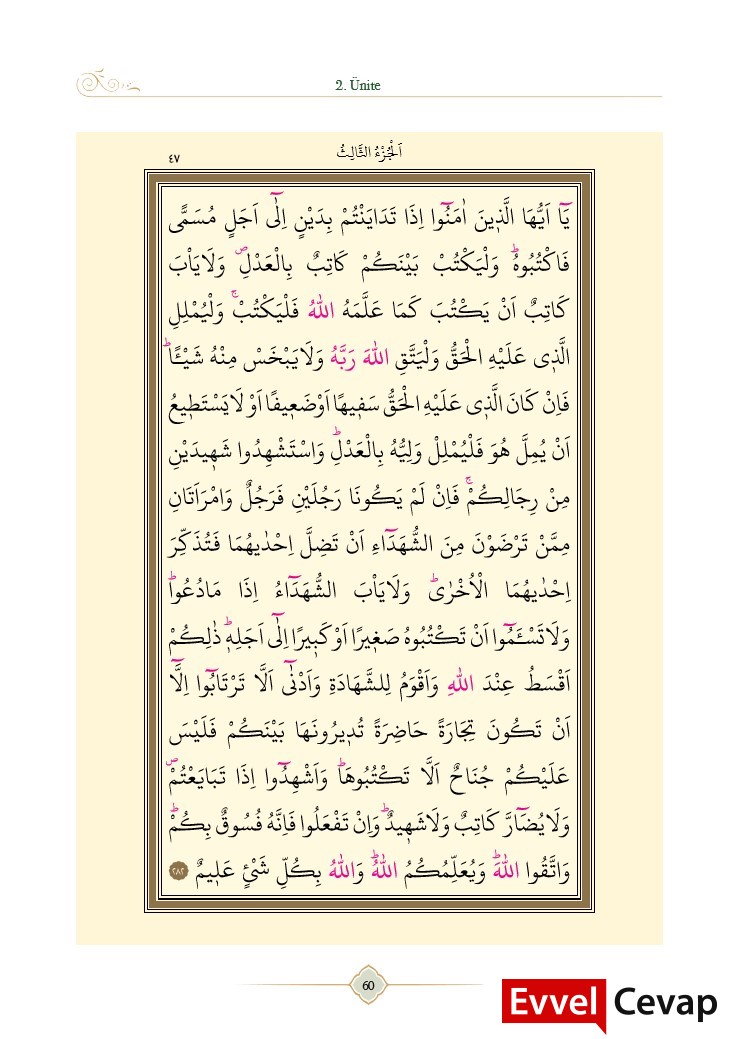 2. Ünite
اَلْجُزْءُ الثَّالِثُ
٤٧
يَٓا اَيُّهَا الَّذ۪ينَ اٰمَنُٓوا اِذَا تَدَايَنْتُمْ بِدَيْنٍ اِلٰٓى اَجَلٍ مُسَمًّى
فَاكْتُبُوهُۜ وَلْيَكْتُبْ بَيْنَكُمْ كَاتِبٌ بِالْعَدْلِۖ وَلَا يَأْبَ
كَاتِبٌ اَنْ يَكْتُبَ كَمَا عَلَّمَهُ اللّٰهُ فَلْيَكْتُبْۚ وَلْيُمْلِلِ
الَّذ۪ي عَلَيْهِ الْحَقُّ وَلْيَتَّقِ اللّٰهَ رَبَّهُ وَلَا يَبْخَسْ مِنْهُ شَيْـًٔاۜ
فَاِنْ كَانَ الَّذ۪ي عَلَيْهِ الْحَقُّ سَف۪يهًا اَوْ ضَع۪يفًا اَوْ لَا يَسْتَط۪يعُ
اَنْ يُمِلَّ هُوَ فَلْيُمْلِلْ وَلِيُّهُ بِالْعَدْلِۜ وَاسْتَشْهِدُوا شَه۪يدَيْنِ
مِنْ رِجَالِكُمْۚ فَاِنْ لَمْ يَكُونَا رَجُلَيْنِ فَرَجُلٌ وَامْرَاَتَانِ
مِمَّنْ تَرْضَوْنَ مِنَ الشُّهَدَٓاءِ اَنْ تَضِلَّ اِحْدٰيهُمَا فَتُذَكِّرَ
اِحْدٰيهُمَا الْاُخْرٰىۜ وَلَا يَأْبَ الشُّهَدَٓاءُ اِذَا مَا دُعُواۜ
وَلَا تَسْـَٔمُٓوا اَنْ تَكْتُبُوهُ صَغ۪يرًا اَوْ كَب۪يرًا اِلٰٓى اَجَلِه۪ۜ ذٰلِكُمْ
اَقْسَطُ عِنْدَ اللّٰهِ وَاَقْوَمُ لِلشَّهَادَةِ وَاَدْنٰٓى اَلَّا تَرْتَابُٓوا اِلَّٓا
اَنْ تَكُونَ تِجَارَةً حَاضِرَةً تُد۪يرُونَهَا بَيْنَكُمْ فَلَيْسَ
عَلَيْكُمْ جُنَاحٌ اَلَّا تَكْتُبُوهَاۜ وَاَشْهِدُٓوا اِذَا تَبَايَعْتُمْۖ
وَلَا يُضَٓارَّ كَاتِبٌ وَلَا شَه۪يدٌۜ وَاِنْ تَفْعَلُوا فَاِنَّهُ فُسُوقٌ بِكُمْۜ
وَاتَّقُوا اللّٰهَۜ وَيُعَلِّمُكُمُ اللّٰهُۜ وَاللّٰهُ بِكُلِّ شَيْءٍ عَل۪يمٌ ٢٨٢
60
Evvel Cevap